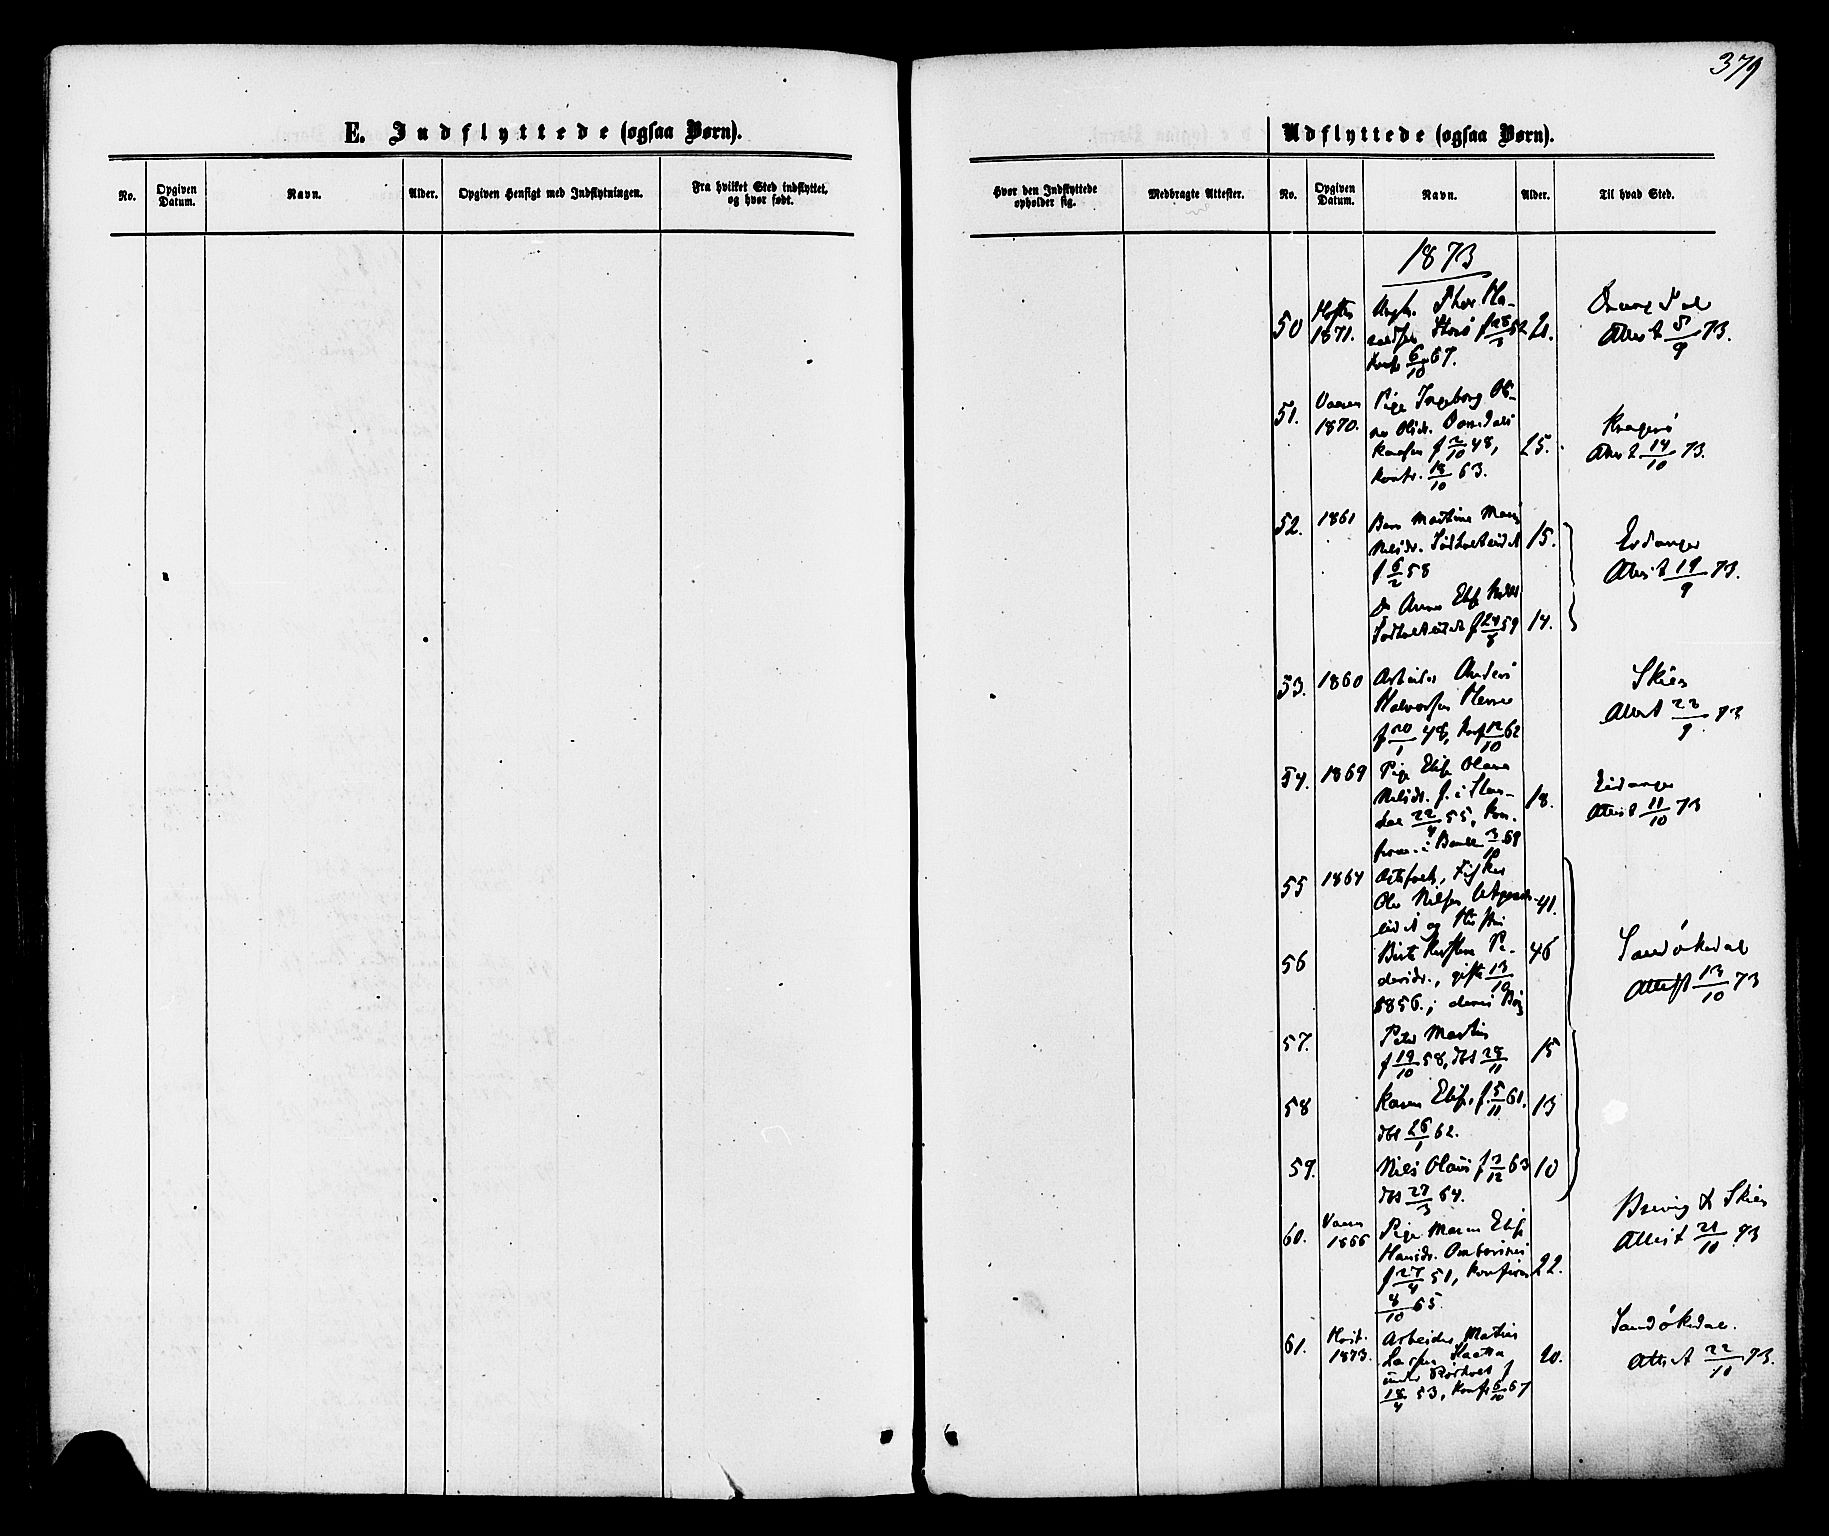 379
E. Indflyttede (ogsaa Børn).
No.
Opgiven Datum.
Navn.
Alder.
Opgiven Hensigt med Indflytningen.
Fra hvilket Sted indflyttet, og hvor født.
Hvor den Indflyttede opholder sig.
Medbragte Attester.
Udflyttede (ogsaa Børn).
No.
Opgiven Datum.
Navn.
Alder.
Til hvad Sted.
1873
50
1871.
Thor
f 28/3 52
6/10 67.
21.
Attest 5/9 73.
51.
Vaaren
1870.
Pige Ingeborg
Olsdr.
f 2/10 48,
18/10 63.
25.
Kragerø
Attest 14/10 73.
52.
1861
Barn Martine
Nilsdr.
f 6/2 58
15.
Eidanger
Attest 19/9 73.
14.
53.
1860
Arbeider Anders
Halvorsen Herre
f 20/1 48, Konf 12/10 62
Skien
Attest 22/9 73
54.
1869
Pige Elise Olava
Nilsdr. f. i
22/4 55, Kon-
i Bamle 3/10 69
18.
Eidanger
Attest 11/10 73
55
1864
Fisker
Ole Nilsen
og Hustru
41.
56
Pe-
dersdr., gift 13/10
1856.; deres
46
Sandøkedal
Attest 13/10 73
57.
Peter Martin
f 19/10 58, dbt 28/11
15
58
Karen Elise, f. 5/11 61.
dbt 26/1 62.
13
59.
Nils Olaus f 3/12 63
dbt 27/3 64.
10
60.
Vaaren
1866
Pige Maren Elise
Hansdr.
f 27/4 51, Konfirm
8/10 65.
22.
Brevig & Skien
Attest 21/10 73
61.
Høst.
1873.
Arbeider Mathias
Larsen
under
18/4 53, Konf 6/10 67
20.
Sandøkedal.
Attest 22/10 73.